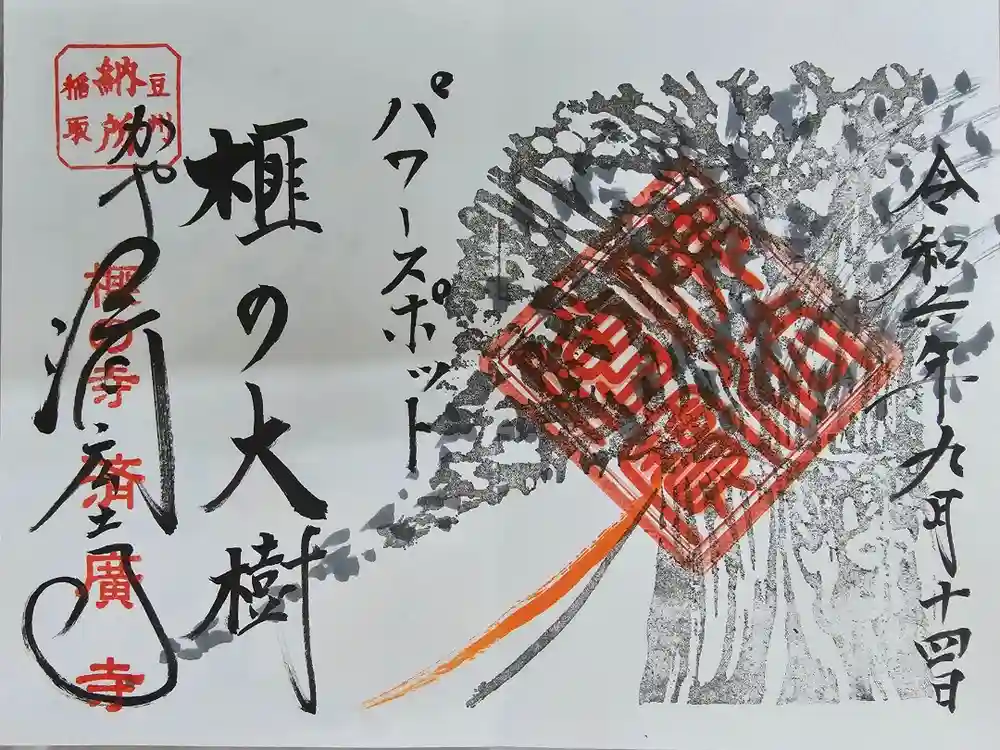 令和六年九月十四日
パワースポット
榧の大樹
かや
済広寺
豆州
納所
稲取
榧の寺 済廣寺